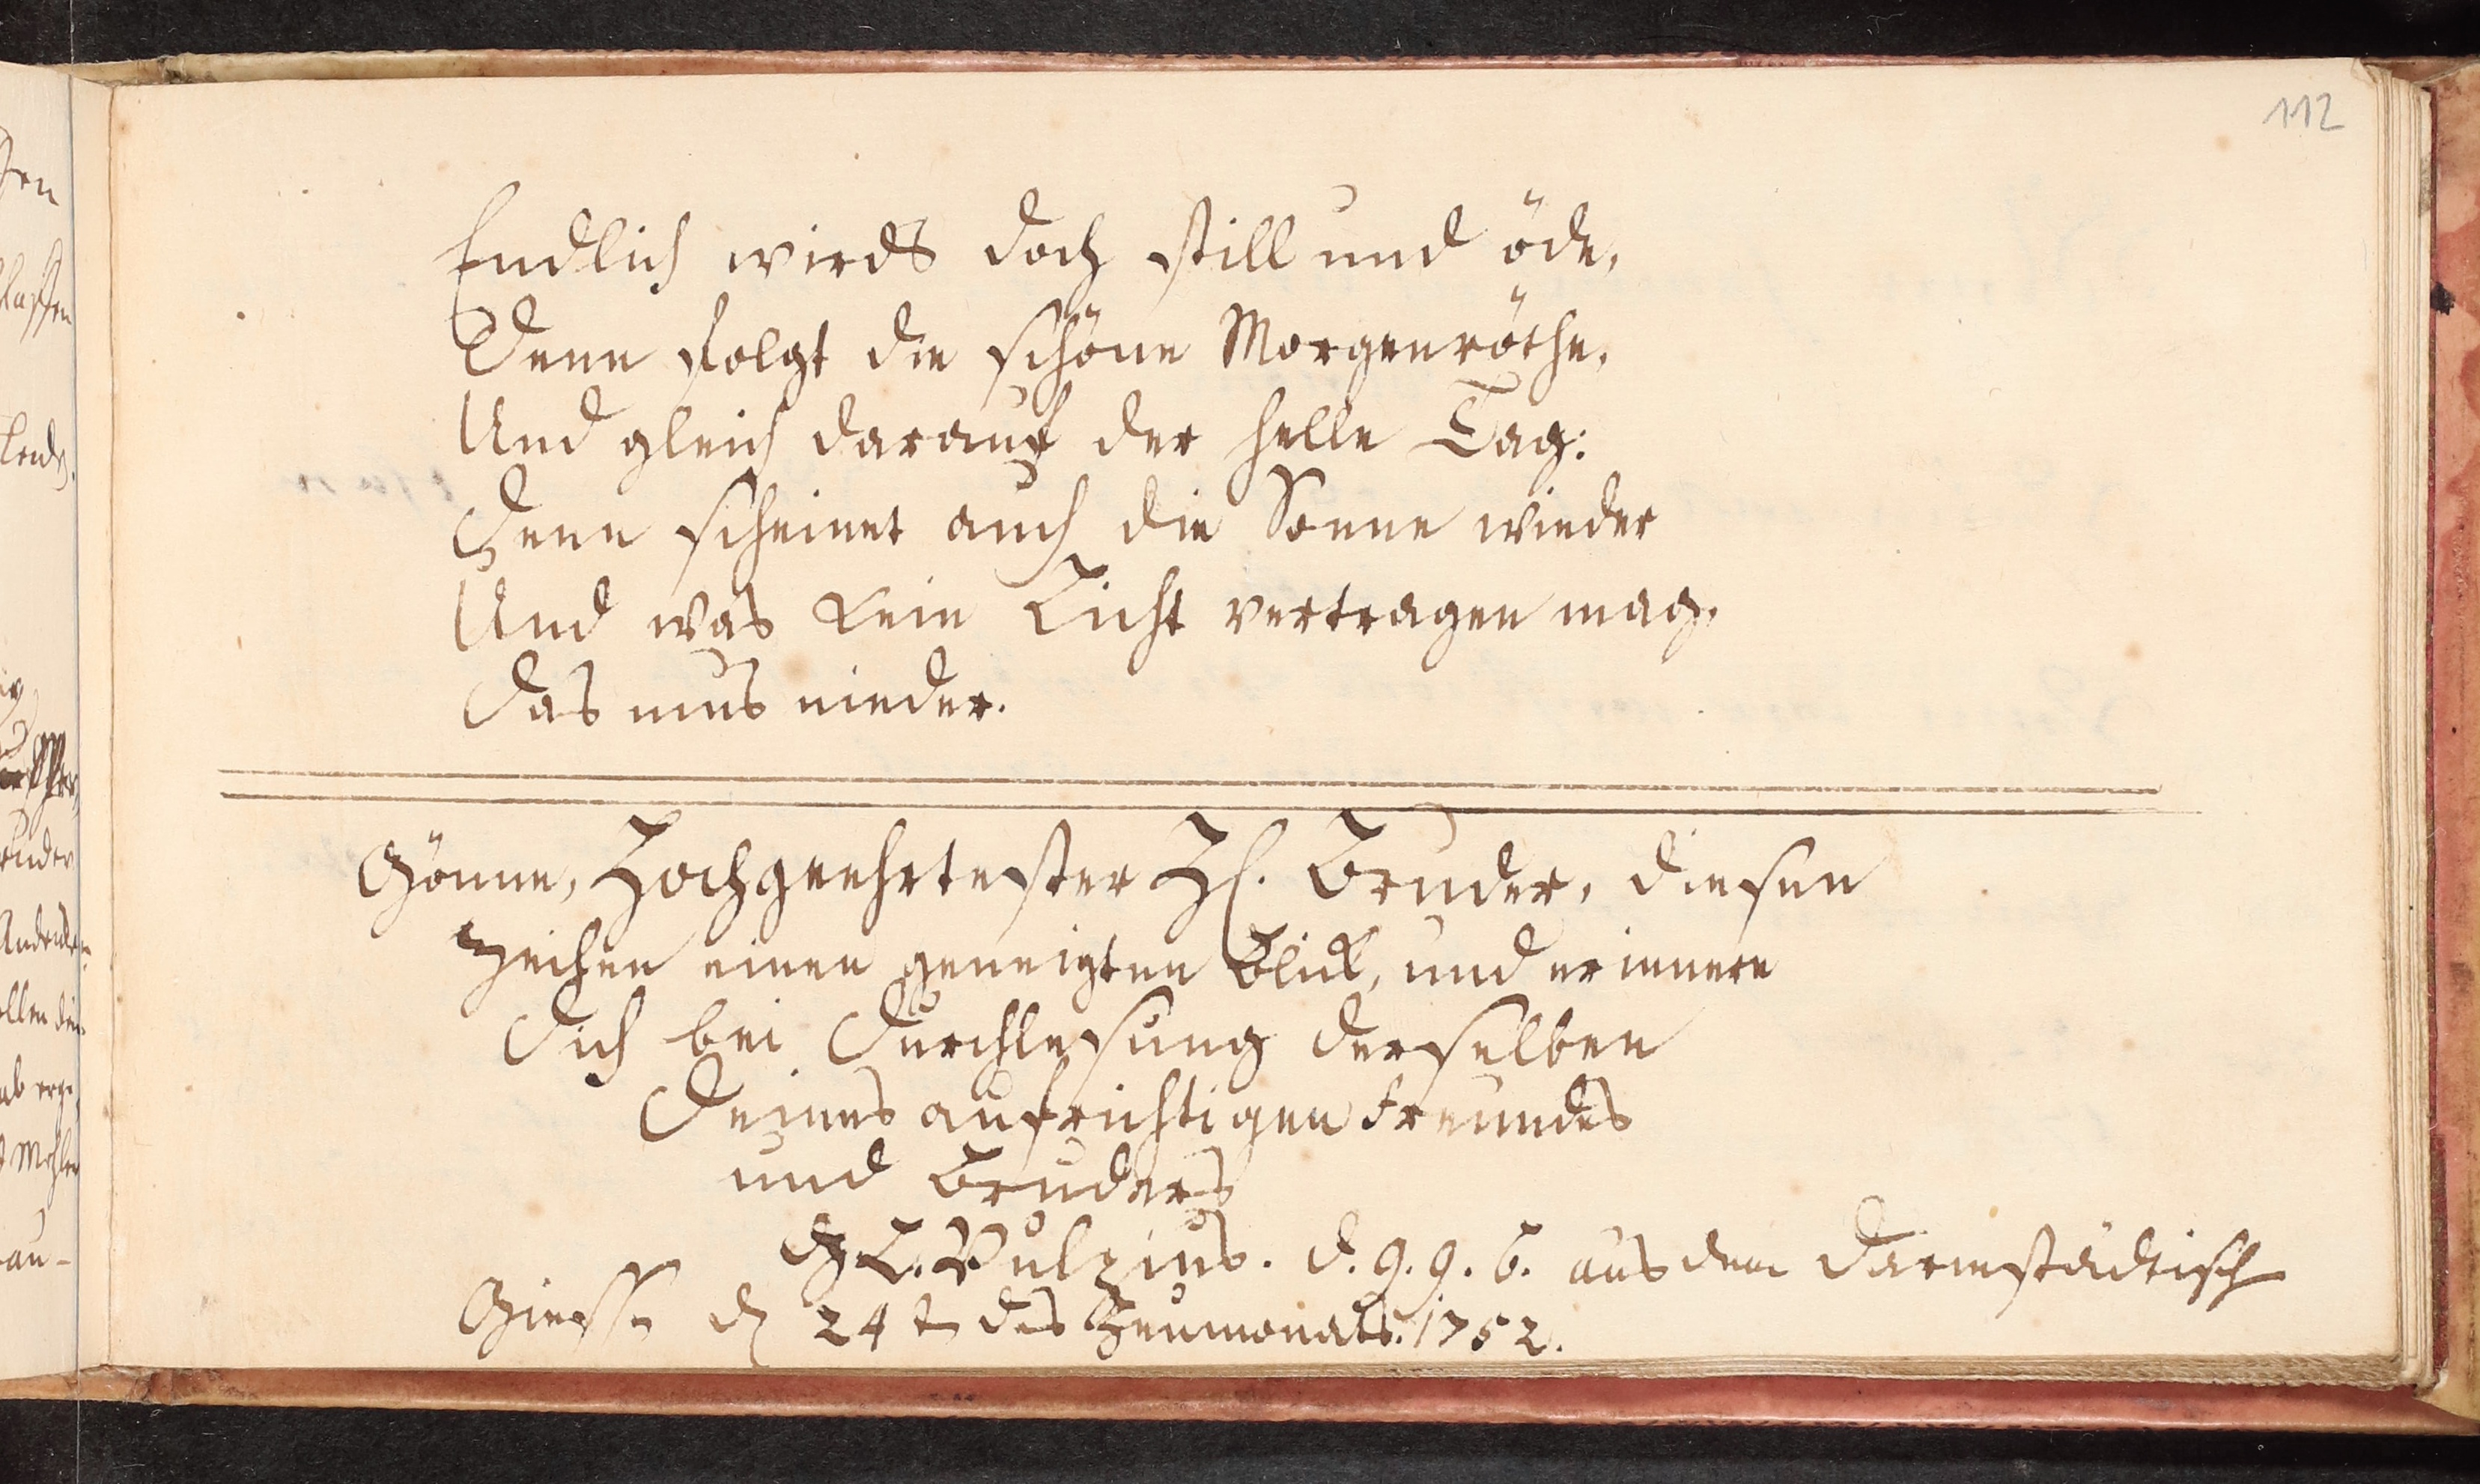 112
Endlich wirds doch still und öde,
Denn folgt die schöne Morgenröthe,
Und gleich darauf der helle Tag:
Denn scheinet auch die Sonne wieder
Und was kein Licht vertragen mag,
Das mus nieder.
Gönne, Hochgeehrtester H. Bruder, diesen
Zeilen einen geneigten Blick, und erinnere
Dich bei Durchlesung derselben
Deines aufrichtigen Freundes
und Bruders
Vulpius. d. g. g. b. aus dem Darmstädtisch
Giessen d 24 t des Heumonats. 1752.